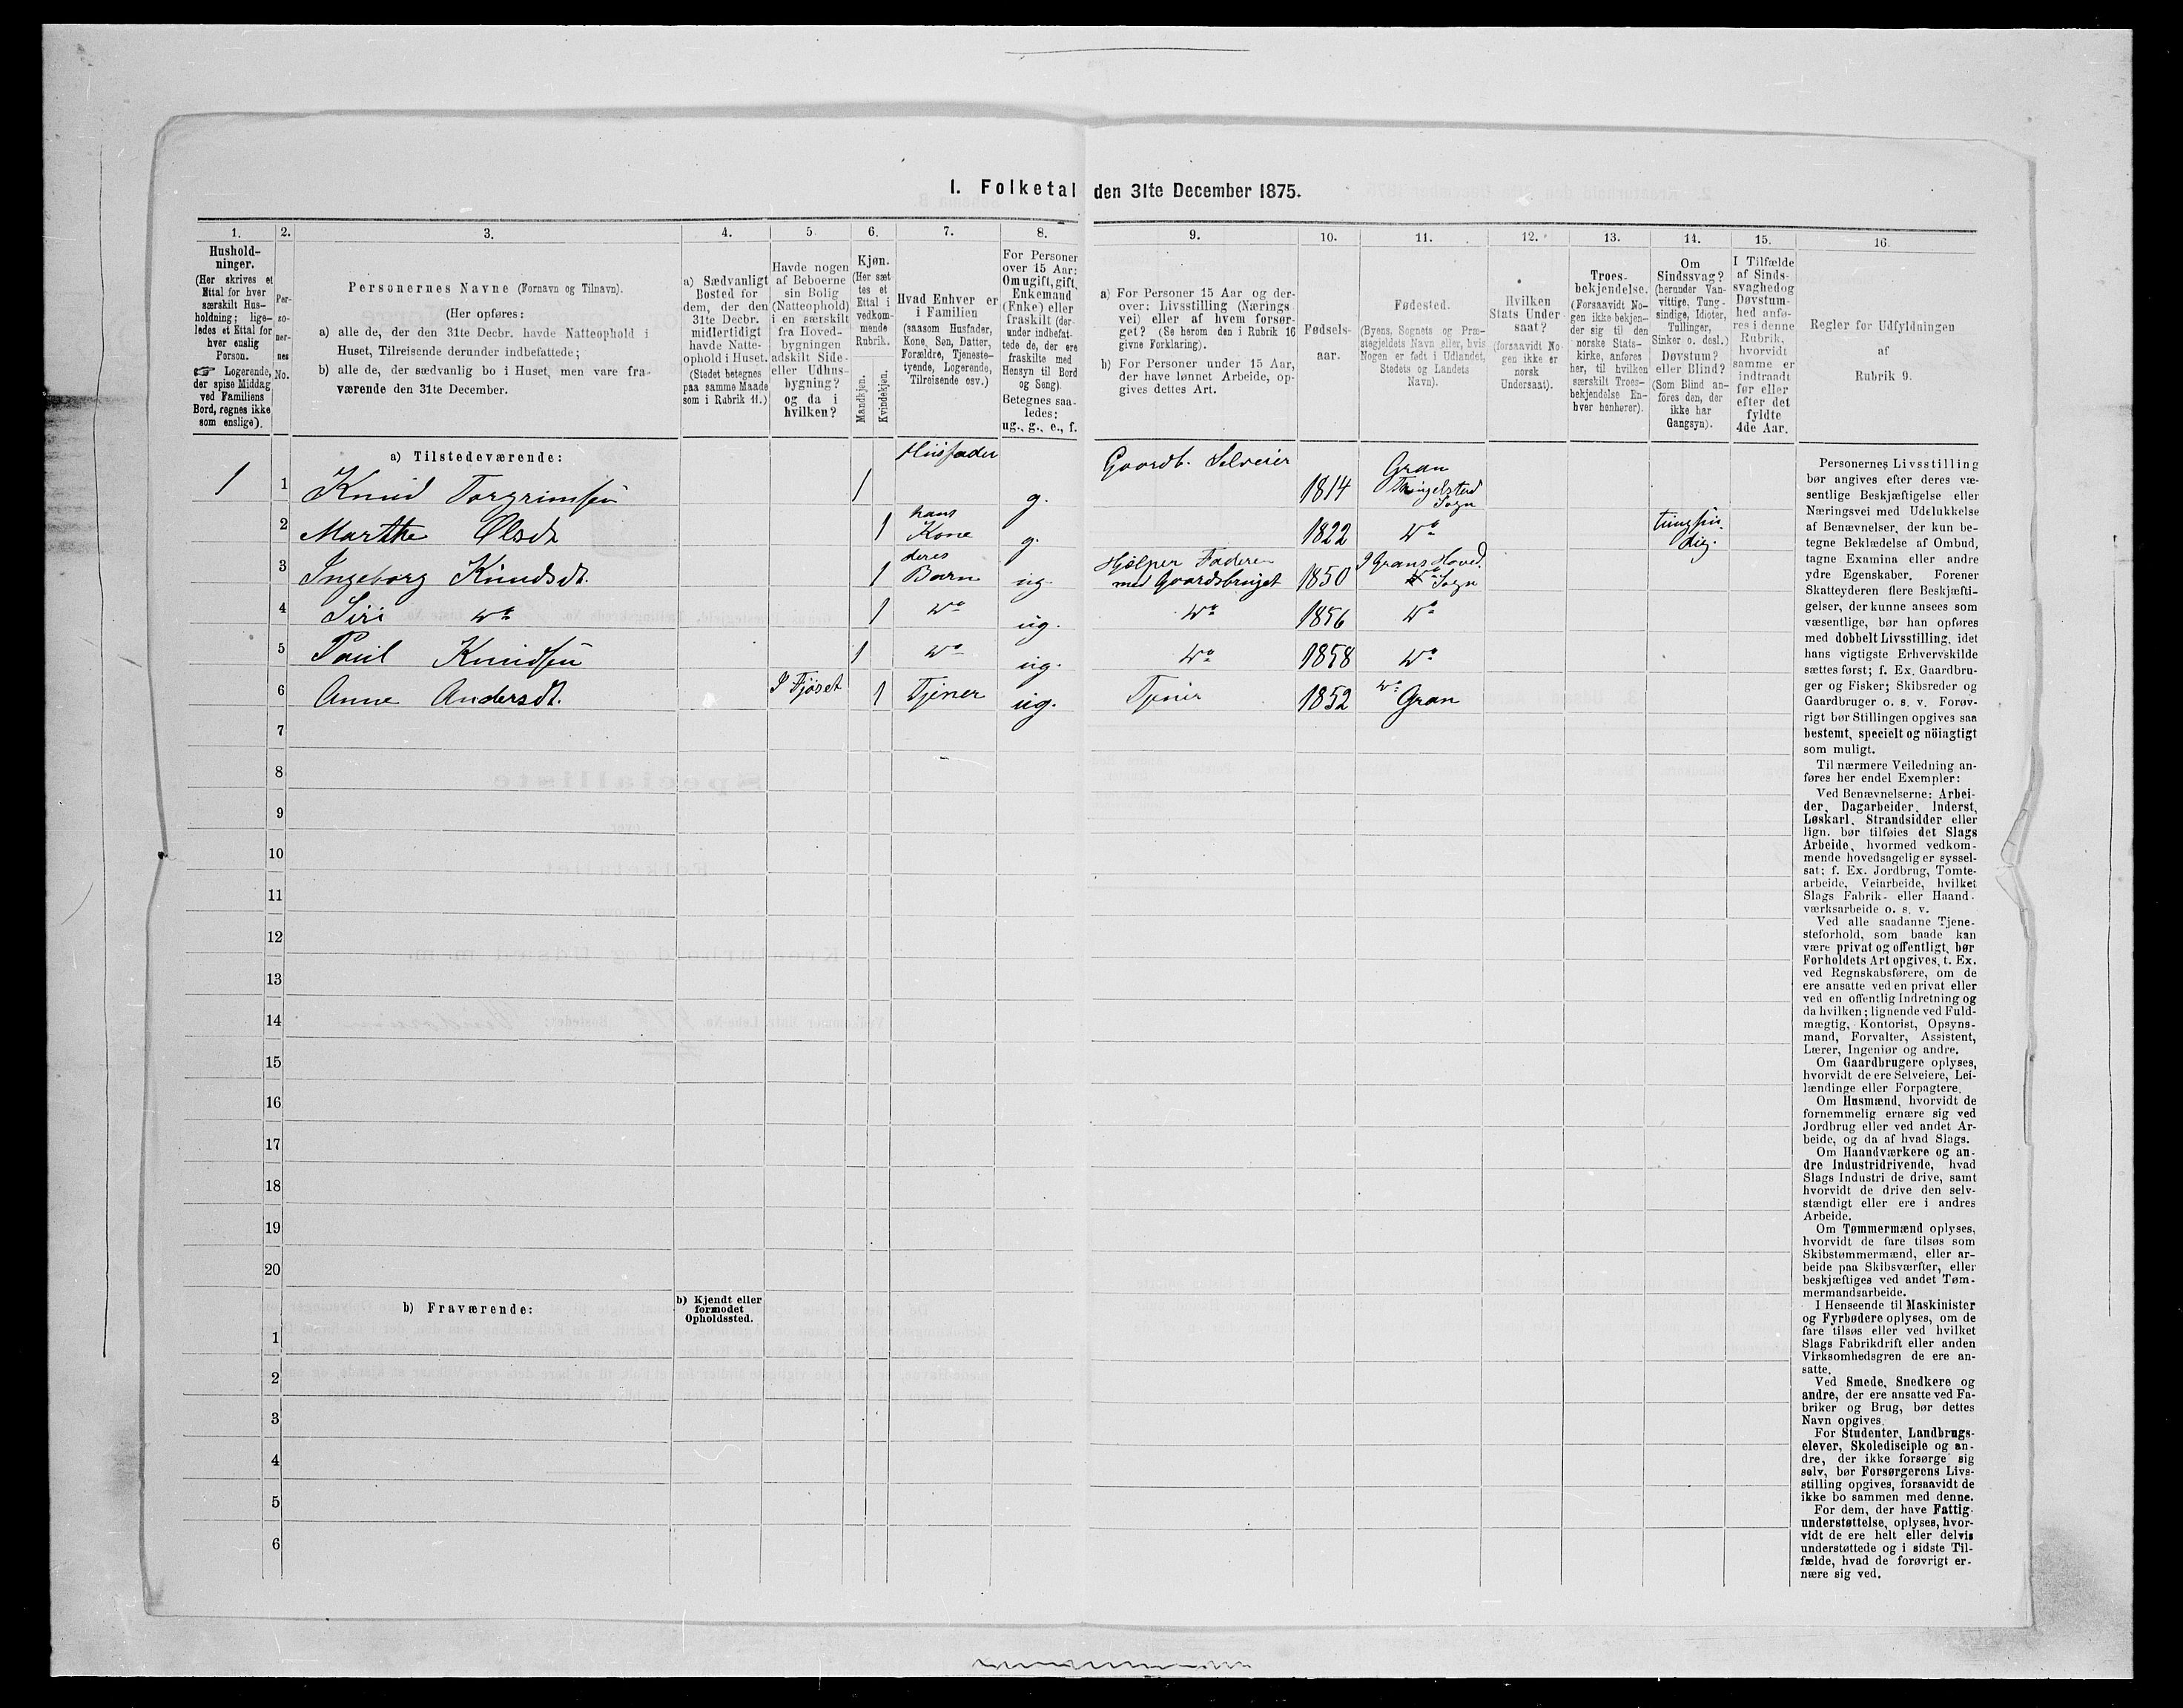 1. Folketal den 31te December 1875.
1. 2. 3. 4. 5. 6. 7. 8. 9. 10. 11. 12. 13. 14. 15. 16.
Hushold-
ninger.
(Her skrives et
Ettal for hver
særskilt Hus-
holdning; lige-
ledes et Ettal for
hver enslig
Person.
☞ Logerende,
der spise Middag
ved Familiens
Bord, regnes ikke
som enslige).
Per-
so-
ner-
nes
No.
Personernes Navne (Fornavn og Tilnavn).
(Her opføres:
a) alle de, der den 31te Decbr. havde Natteophold i
Huset, Tilreisende derunder indbefattede;
b) alle de, der sædvanlig bo i Huset, men vare fra-
værende den 31te December.
a) Sædvanligt
Bosted for
dem, der den
31te Decbr.
midlertidigt
havde Natte-
ophold i Huset.
(Stedet betegnes
paa samme Maade
som i Rubrik 11.)
Havde nogen
af Beboerne
sin Bolig
(Natteophold)
i en særskilt
fra Hoved-
bygningen
adskilt Side-
eller Udhus-
bygning?
og da i
hvilken?
Kjøn.
(Her sæt
tes et
Ettal i
vedkom-
mende
Rubrik.
Mandkjøn.
Kvindekjøn.
Hvad Enhver er
i Familien
(saasom Husfader,
Kone, Søn, Datter,
Forældre, Tjeneste-
tyende, Logerende,
Tilreisende osv.)
For Personer
over 15 Aar:
Om ugift, gift,
Enkemand
(Enke) eller
fraskilt (der-
under indbefat-
tede de, der ere
fraskilte med
Hensyn til Bord
og Seng).
Betegnes saa-
ledes:
ug., g., e., f.
a) For Personer 15 Aar og der-
over: Livsstilling (Nærings
vei) eller af hvem forsør-
get? (Se herom den i Rubrik 16
givne Forklaring).
b) For Personer under 15 Aar,
der have lønnet Arbeide, op-
gives dettes Art.
Fødsels-
aar.
Fødested.
(Byens, Sognets og Præ-
stegjeldets Navn eller, hvis
Nogen er født i Udlandet,
Stedets og Landets
Navn).
Hvilken
Stats Under-
saat?
(forsaavidt No-
gen ikke er
norsk
Undersaat).
Troes-
bekjendelse.
(Forsaavidt No-
gen ikke bekjen-
der sig til den
norske Stats-
kirke, anføres
her, til hvilken
særskilt Troes-
bekjendelse En-
hver henhører).
Om
Sindssvag?
(herunder Van-
vittige, Tung-
sindige, Idioter,
Tullinger,
Sinker o. desl.)
Døvstum?
eller Blind?
(Som Blind an-
føres den, der
ikke har
Gangsyn).
I Tilfælde
af Sinds-
svaghed og
Døvstum-
hed anfø-
res i denne
Rubrik,
hvorvidt
samme er
indtraadt
før eller
efter det
fyldte
4de Aar.
Regler for Udfyldningen
af
Rubrik 9.
a) Tilstedeværende:
1 1 Knud Torgrimsen 1 Husfader g. Gaardb. Selveier 1814 Gran Tingelstad Sogn
2 Marthe Olsdt 1 hans Kone g. 1822 Do tungsin- dig.
3 Ingeborg Knudsdt. 1 deres Barn ug. Hjelper Faderen med Gaardsbruget 1850 I Grans Hoved Sogn
4 Siri Do 1 Do ug. Do 1856 Do
5 Paul Knudsen 1 Do ug. Do 1858 Do
6 Anne Andersdt. I Fjøset 1 Tjener ug. Tjener 1852 Do Gran
7
8
9
10
11
12
13
14
15
16
17
18
19
20
b) Fraværende:
b) Kjendt eller
formodet
Opholdssted.
1
2
3
4
5
6
Personernes Livsstilling
bør angives efter deres væ-
sentlige Beskjæftigelse eller
Næringsvei med Udelukkelse
af Benævnelser, der kun be-
tegne Beklædelse af Ombud,
tagne Examina eller andre
ydre Egenskaber. Forener
Skatteyderen flere Beskjæfti-
gelser, der kunne ansees som
væsentlige, bør han opføres
med dobbelt Livsstilling, idet
hans vigtigste Erhvervskilde
sættes først; f. Ex. Gaardbru-
ger og Fisker; Skibsreder og
Gaardbruger o. s. v. Forøv-
rigt bør Stillingen opgives saa
bestemt, specielt og nöiagtigt
som muligt.
Til nærmere Veiledning an-
føres her endel Exempler:
Ved Benævnelserne: Arbei-
der, Dagarbeider, Inderst,
Løskarl, Strandsidder eller
lign. bør tilføies det Slags
Arbeide, hvormed vedkom-
mende hovedsagelig er syssel-
sat; f. Ex. Jordbrug, Tomte-
arbeide, Veiarbeide, hvilket
Slags Fabrik- eller Haand-
værksarbeide o. s. v.
Ved alle saadanne Tjene-
steforhold, som baade kan
være privat og offentligt, bør
Forholdets Art opgives, t. Ex.
ved Regnskabsførere, om de
ere ansatte ved en privat eller
ved en offentlig Indretning og
da hvilken; lignende ved Fuld-
mægtig, Kontorist, Opsyns-
mand, Forvalter, Assistent,
Lærer, Ingeniør og andre.
Om Gaardbrugere oplyses,
hvorvidt de ere Selveiere, Lei-
lændinge eller Forpagtere.
Om Husmænd, hvorvidt de
fornemmelig ernære sig ved
Jordbrug eller ved andet Ar-
beide, og da af hvad Slags.
Om Haandværkere og an-
dre Industridrivende, hvad
Slags Industri de drive, samt
hvorvidt de drive den selv-
stændigt eller ere i andres
Arbeide.
Om Tømmermænd oplyses,
hvorvidt de fare tilsøs som
Skibstømmermænd, eller ar-
beide paa Skibsværfter, eller
beskjæftiges ved andet Tøm-
mermandsarbeide.
I Henseende til Maskinister
og Fyrbødere oplyses, om de
fare tilsøs eller ved hvilket
Slags Fabrikdrift eller anden
Virksomhedsgren de ere an-
satte.
Ved Smede, Snedkere og
andre, der ere ansatte ved Fa-
briker og Brug, bør dettes
Navn opgives.
For Studenter, Landbrugs-
elever, Skoledisciple og an-
dre, der ikke forsørge sig
selv, bør Forsørgerens Livs-
stilling opgives, forsaavidt de
ikke bo sammen med denne.
For dem, der have Fattig-
understøttelse, oplyses, hvor-
vidt de ere helt eller delvis
understøttede og i sidste Til-
fælde, hvad de forøvrigt er-
nære sig ved.